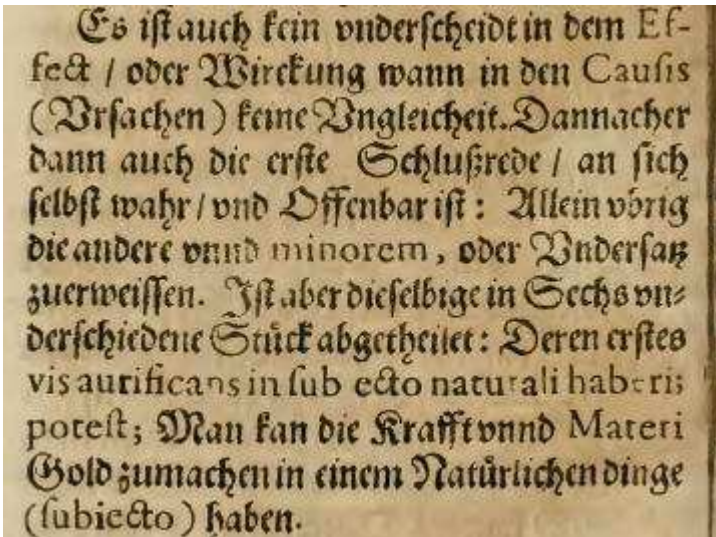 Es iſt auch kein vnderſcheidt in dem Ef-
fect / oder Wirckung wann in den Cauſis
(Vrſachen) keine Vngleicheit. Dannacher
dann auch die erſte Schlußrede / an ſich
ſelbſt wahr / vnd Offenbar iſt : Allein vbrig
die andere vnnd minorem, oder Vnderſatz
zuerweiſſen. Iſt aber dieſelbige in Sechs vn-
derſchiedene Stuͤck abgetheilet : Deren erſtes
vis aurificans in ſub ecto naturali haberi
poteſt; Man kan die Krafft vnnd Materi
Gold zumachen in einem Natuͤrlichen dinge
(ſubiecto) haben.